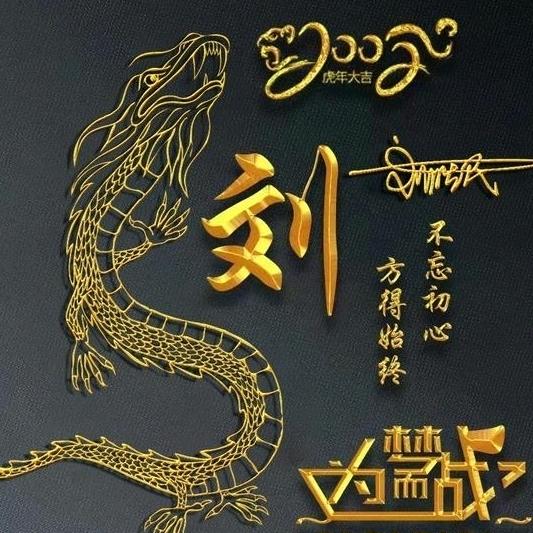 虎年大吉
刘
不忘初心
方得始终
为梦而战